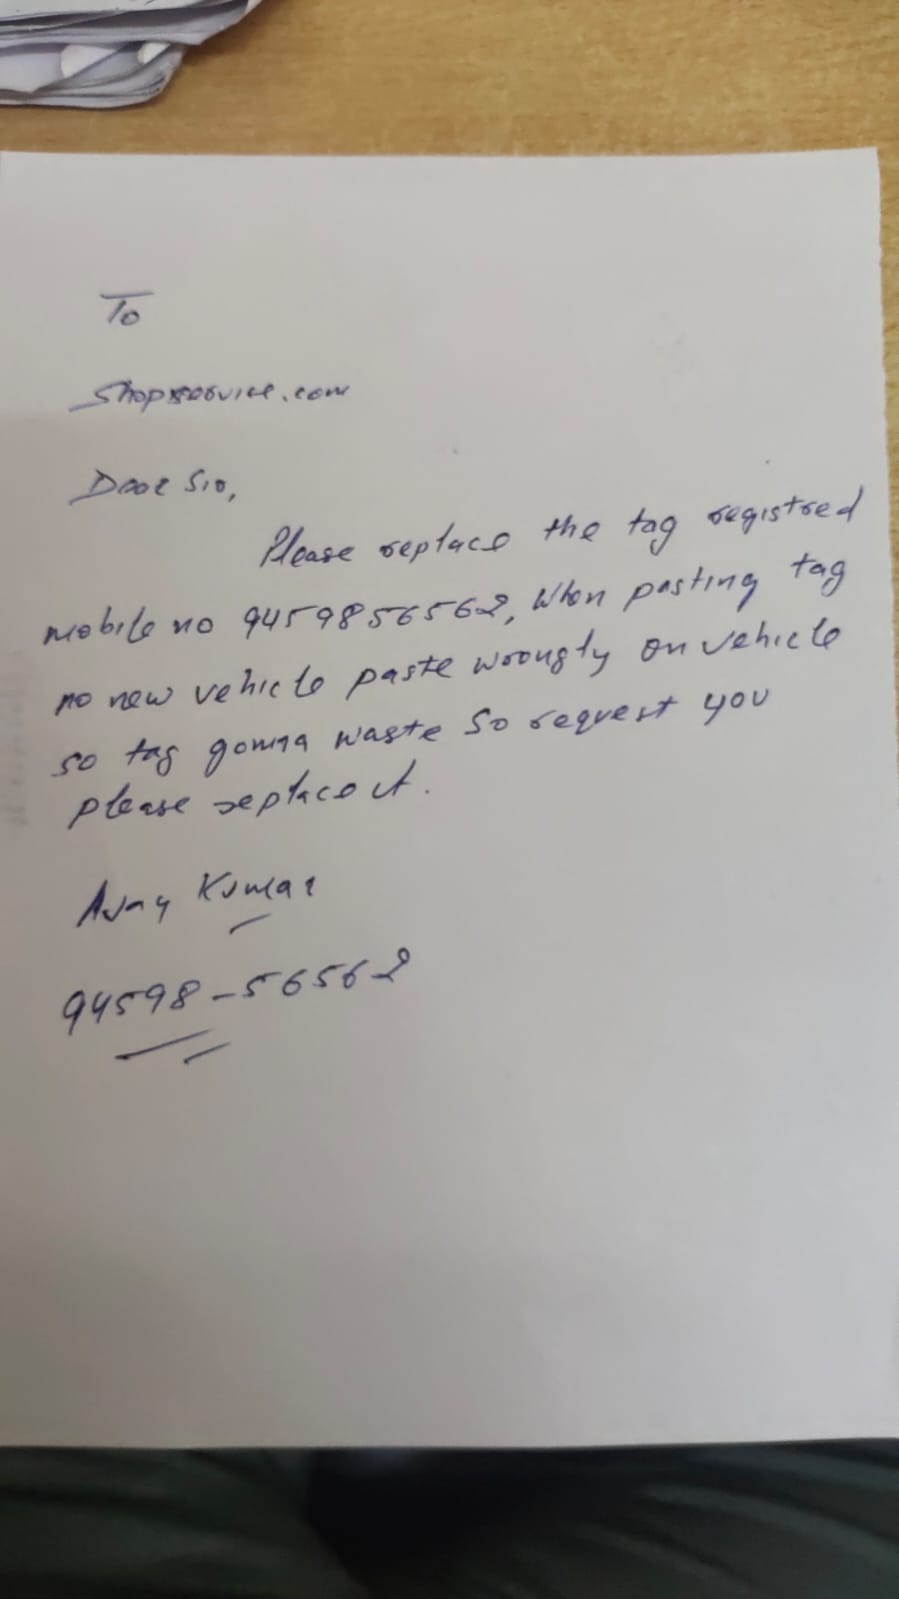 To
Shopservice.com
Dear Sir,
Please replace the tag registred
mobile no 9459856562, When pasting tag
no new vehicle paste wrongly on vehicle
so tag gonna waste So request you
please replace it.
Ajay Kumar
94598-56562